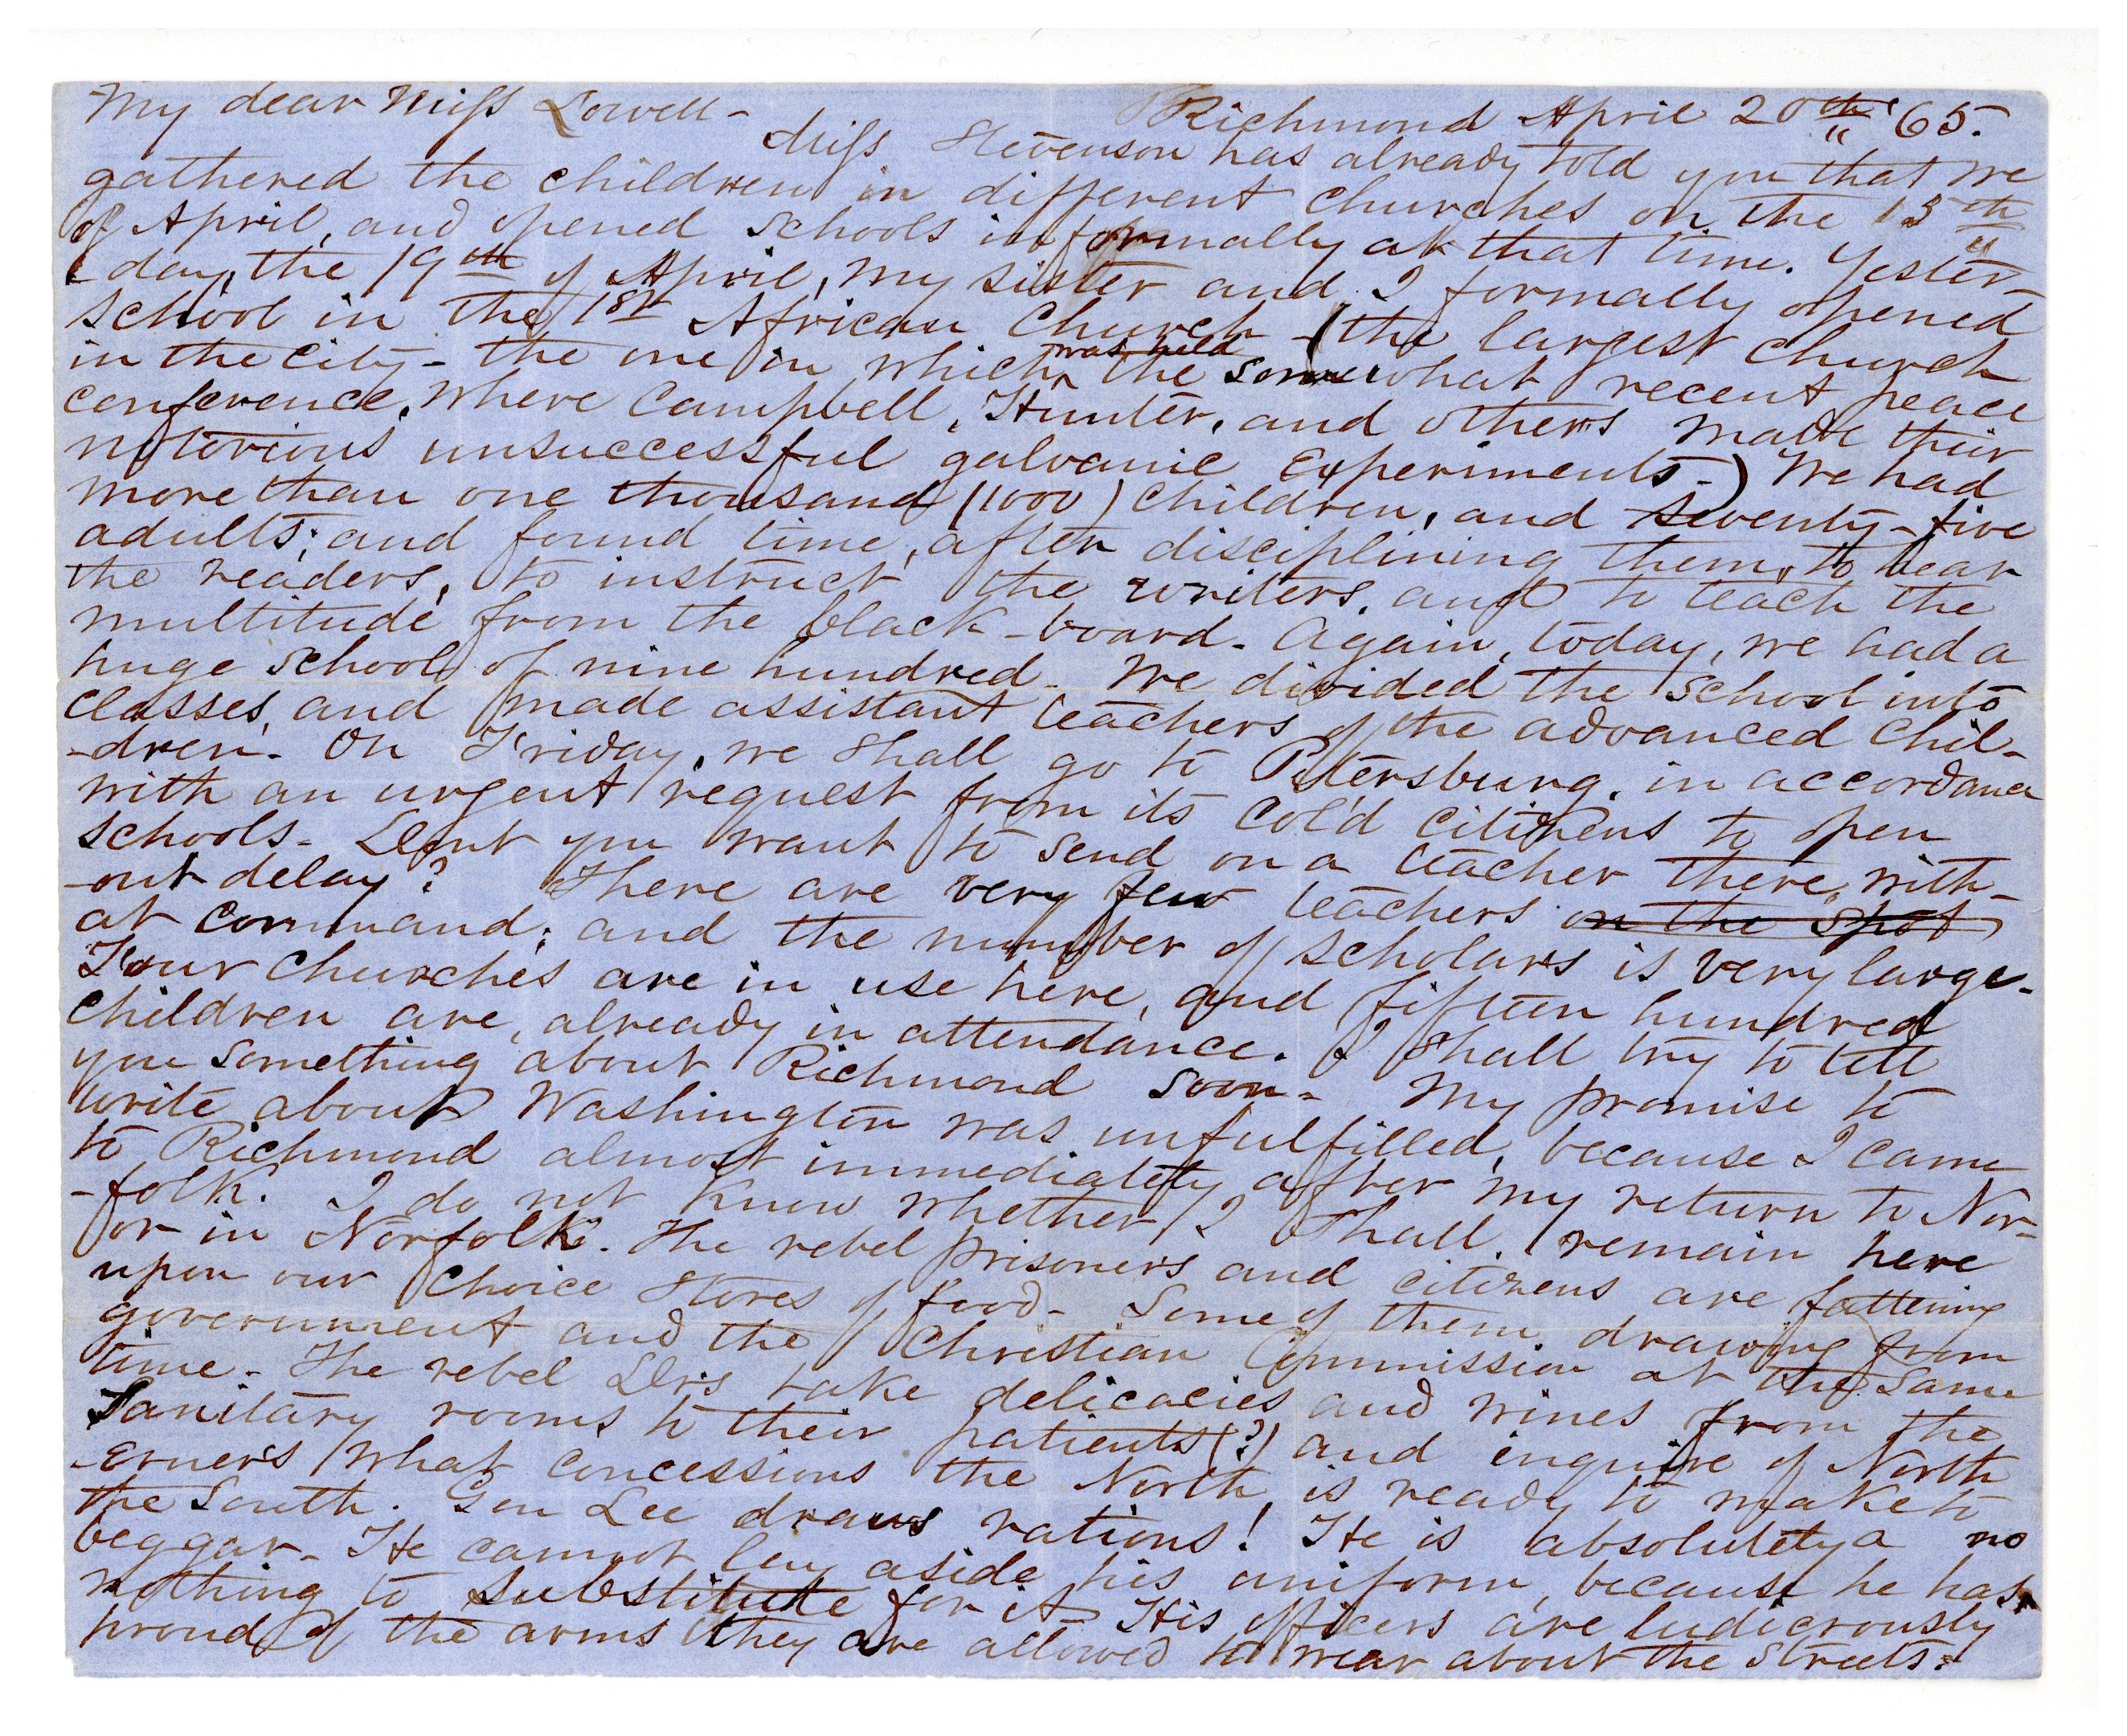 My dear Miss Lowell- Richmond April 20th '65.
Miss Stevenson has already told you that we
gathered the children in different churches on the 15th
of April, and opened schools informally at that time. Yester-
-day, the 19th of April, my sister and I formally opened
school in the 1st African Church - (the largest church
in the city - the one in which was held the somewhat recent peace
conference, where Campbell, Hunter, and others made their
notorious unsuccessful galvanic experiments-) We had
more than one thousand (1000) children, and seventy-five
adults; and found time, after disciplining them, to hear
the readers, to instruct the writers, and to teach the
multitude from the black-board. Again, today, we had a
huge school of nine hundred. We divided the school into
classes, and made assistant teachers of the advanced chil-
-dren. On Friday, we shall go to Petersburg, in accordance
with an urgent request from its col'd citizens to open
schools. Dont you want to send on a teacher there, with-
-out delay? There are very few teachers on the spot
at command; and the number of scholars is very large.
Four churches are in use here, and fifteen hundred
children are, already in attendance. I shall try to tell
you something about Richmond soon- My promise to
write about Washington was unfulfilled, because I came
to Richmond almost immediately after my return to Nor-
-folk. I do not know whether I shall remain here
or in Norfolk. The rebel prisoners and citizens are fattening
upon our choice stores of food- Some of them drawing from
government and the Christian Commission at the same
time- The rebel Drs take delicacies and wines from the
Sanitary rooms to their patients(?) and inquire of North
-erners what concessions the North is ready to make to
the South. Gen Lee draws rations! He is absolutely a
beggar- He cannot lay aside his uniform, because he has no
nothing to substitute for it- His officers are ludicrously
proud of the arms they are allowed to wear about the streets-